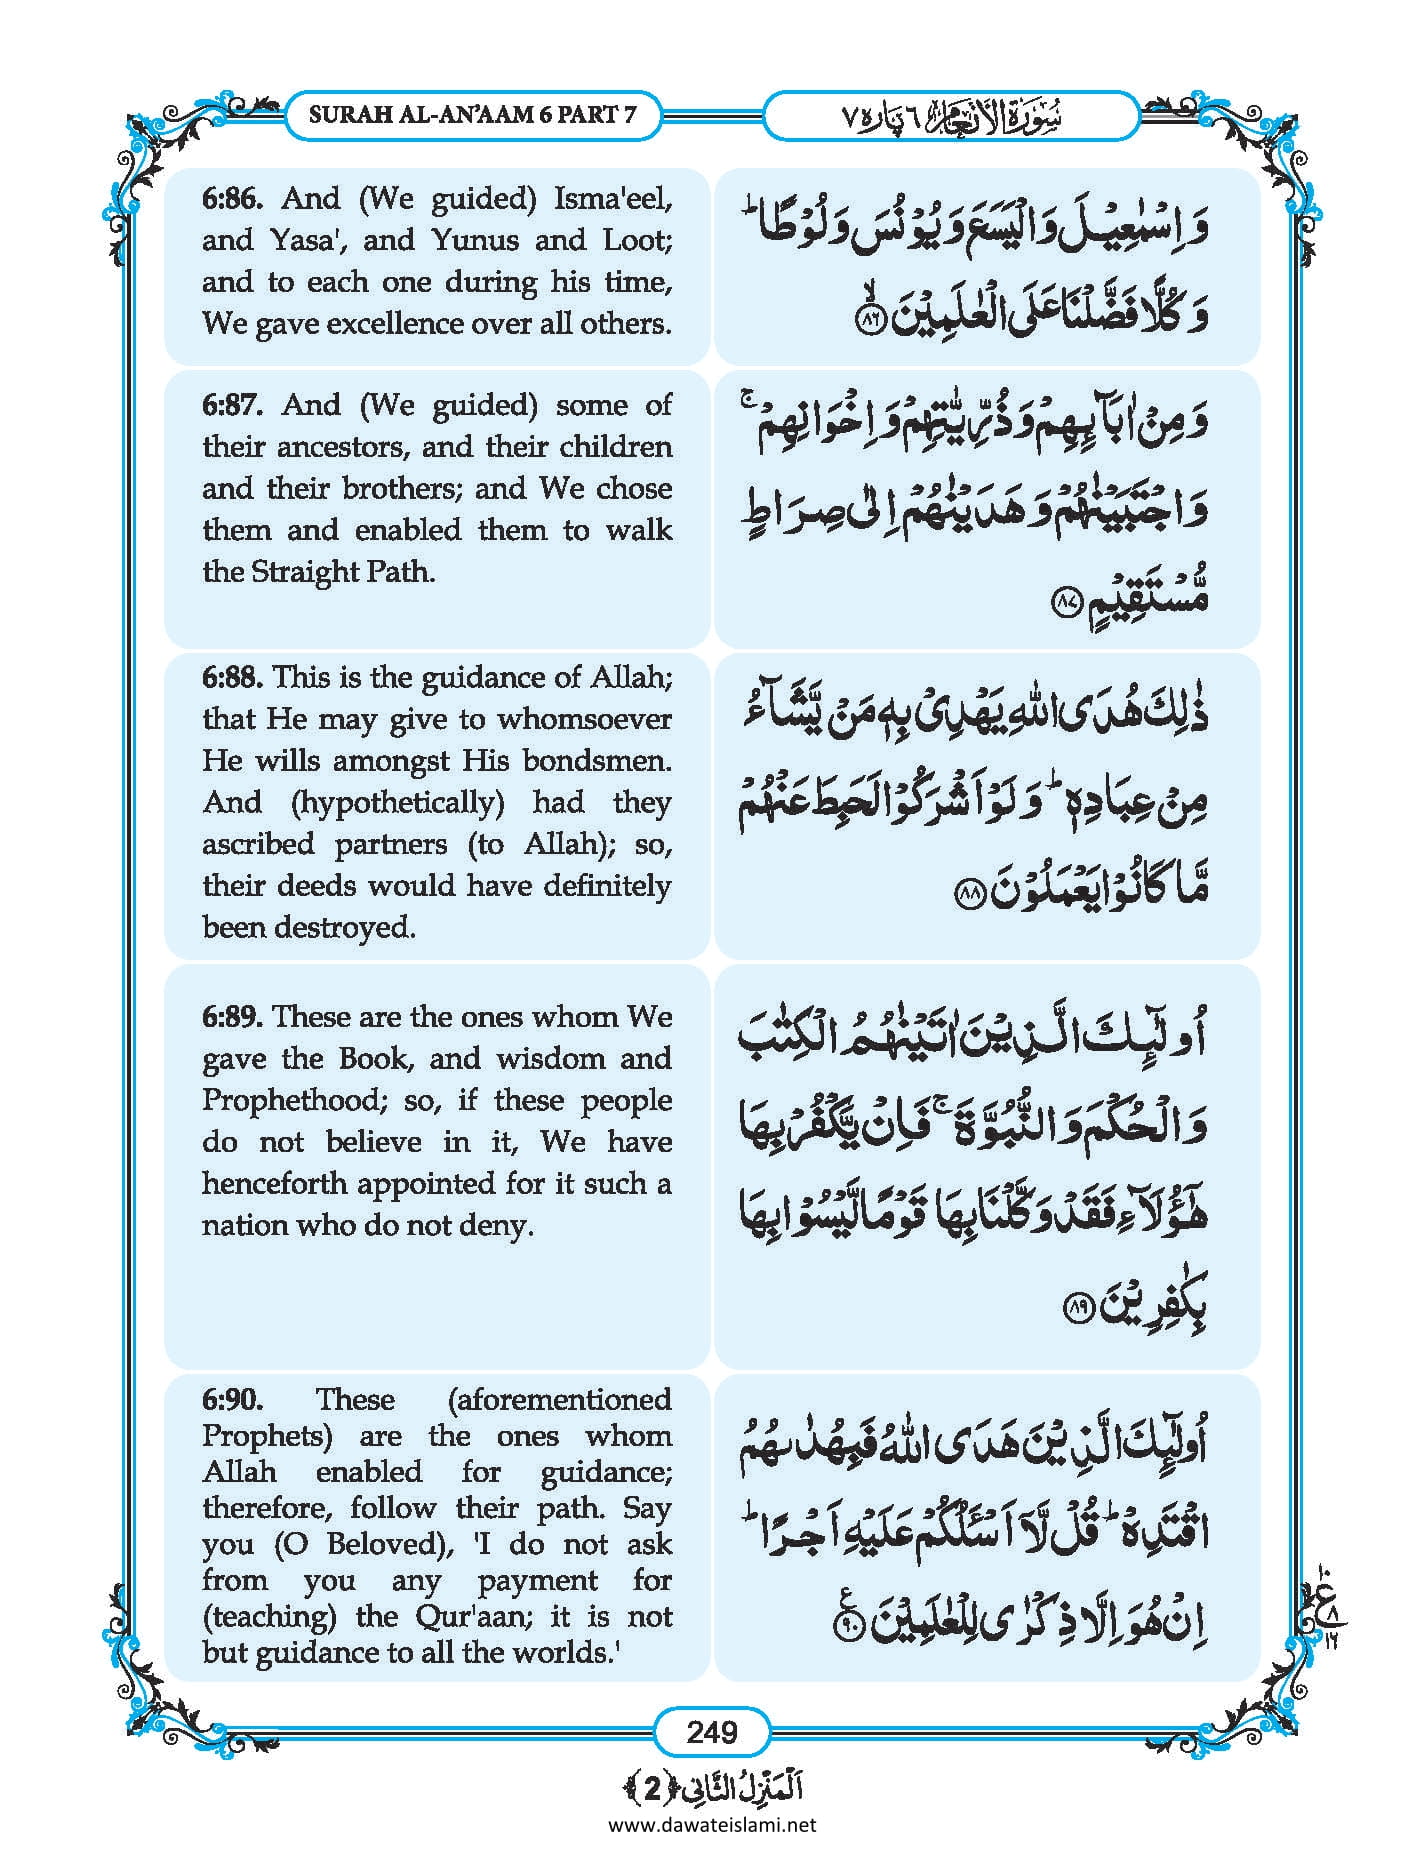 SURAH AL-AN'AAM 6 PART 7
سُوْرَةُ الْاَنْعَام ٦ پارہ ٧
6:86. And (We guided) Isma'eel,
and Yasa', and Yunus and Loot;
and to each one during his time,
We gave excellence over all others.
وَ اِسْمٰعِیْلَ وَ الْیَسَعَ وَ یُوْنُسَ وَ لُوْطًا ؕ
وَ كُلًّا فَضَّلْنَا عَلَى الْعٰلَمِیْنَ ۙ﴿۸۶﴾
6:87. And (We guided) some of
their ancestors, and their children
and their brothers; and We chose
them and enabled them to walk
the Straight Path.
وَ مِنْ اٰبَآىِٕهِمْ وَ ذُرِّیّٰتِهِمْ وَ اِخْوَانِهِمْ ۚ
وَ اجْتَبَیْنٰهُمْ وَ هَدَیْنٰهُمْ اِلٰى صِرَاطٍ
مُّسْتَقِیْمٍ ﴿۸۷﴾
6:88. This is the guidance of Allah;
that He may give to whomsoever
He wills amongst His bondsmen.
And (hypothetically) had they
ascribed partners (to Allah); so,
their deeds would have definitely
been destroyed.
ذٰلِكَ هُدَى اللّٰهِ یَهْدِیْ بِهٖ مَنْ یَّشَآءُ
مِنْ عِبَادِهٖ ؕ وَ لَوْ اَشْرَكُوْا لَحَبِطَ عَنْهُمْ
مَّا كَانُوْا یَعْمَلُوْنَ ﴿۸۸﴾
6:89. These are the ones whom We
gave the Book, and wisdom and
Prophethood; so, if these people
do not believe in it, We have
henceforth appointed for it such a
nation who do not deny.
اُولٰٓىِٕكَ الَّذِیْنَ اٰتَیْنٰهُمُ الْكِتٰبَ
وَ الْحُكْمَ وَ النُّبُوَّةَ ۚ فَاِنْ یَّكْفُرْ بِهَا
هٰۤؤُلَآءِ فَقَدْ وَكَّلْنَا بِهَا قَوْمًا لَّیْسُوْا بِهَا
بِكٰفِرِیْنَ ﴿۸۹﴾
6:90. These (aforementioned
Prophets) are the ones whom
Allah enabled for guidance;
therefore, follow their path. Say
you (O Beloved), 'I do not ask
from you any payment for
(teaching) the Qur'aan; it is not
but guidance to all the worlds.'
اُولٰٓىِٕكَ الَّذِیْنَ هَدَى اللّٰهُ فَبِهُدٰىهُمُ
اقْتَدِهْ ؕ قُلْ لَّاۤ اَسْـَٔلُكُمْ عَلَیْهِ اَجْرًا ؕ
اِنْ هُوَ اِلَّا ذِكْرٰى لِلْعٰلَمِیْنَ ﴿۹۰﴾ ع
١٠
ع
٨
١٦
249
اَلْمَنْزِلُ الثَّانِی ﴿2﴾
www.dawateislami.net